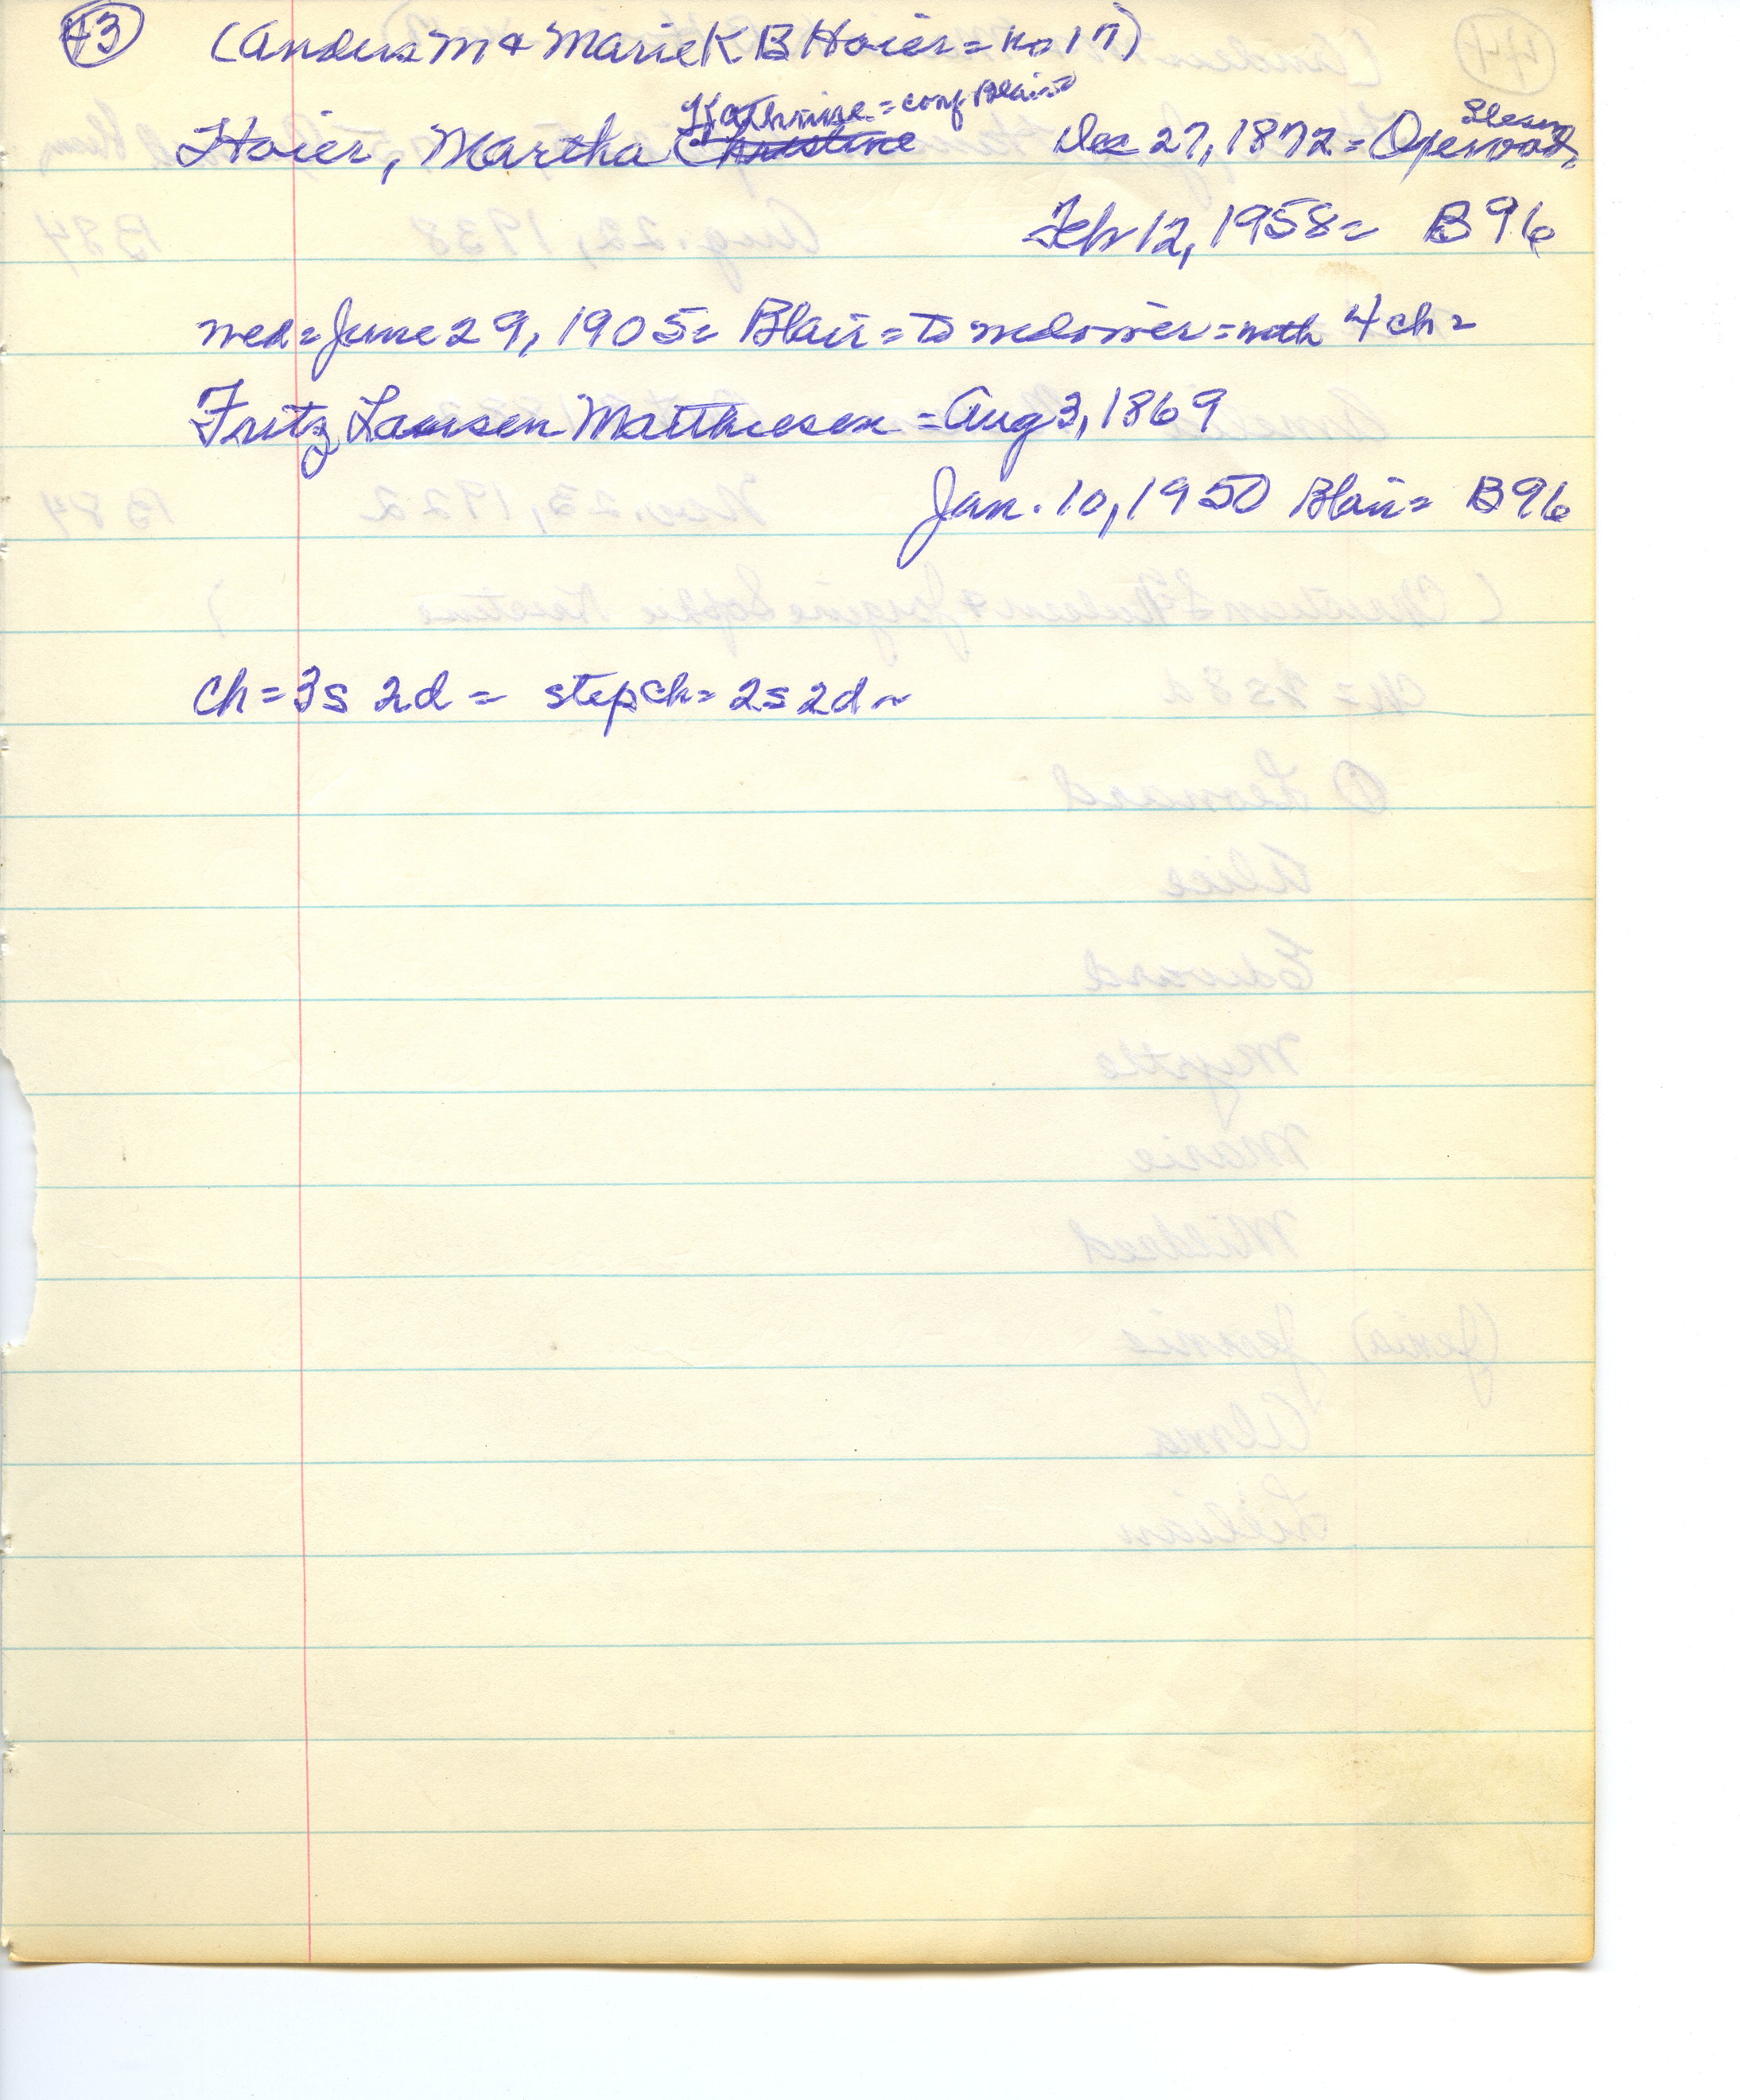 43 (Anders M & Marie K B Hoier = no 17)
Kathrine = conf Blair =
Hoier, Martha Christine Dec 27, 1872 =
Feb 12, 1958 = B96
wed = June 29, 1905 = Blair = to widower = with 4 ch =
Fritz Laursen Matthiesen = Aug 3, 1869
Jan. 10, 1950 Blair = B96
ch = 3s 2d = step ch = 2s 2d ~